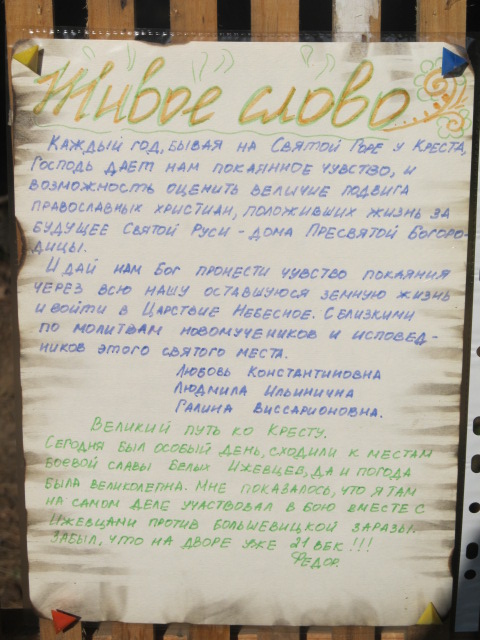 Живое слово
Каждый год, бывая на Святой Горе у Креста,
Господь дает нам покаянное чувство, и
возможность оценить величие подвига
православных христиан, положивших жизнь за
будущее Святой Руси - дома Пресвятой Богоро-
дицы.
И дай нам Бог пронести чувство покаяния
через всю нашу оставшуюся земную жизнь
и войти в Царствие Небесное. С близкими
по молитвам новомучеников и исповед-
ников этого святого места.
Любовь Константиновна
Людмила Ильинична
Галина Виссарионовна.
Великий путь ко Кресту.
Сегодня был особый день, сходили к местам
боевой славы белых Ижевцев, да и погода
была великолепна. Мне показалось, что я там
на самом деле участвовал в бою вместе с
Ижевцами против большевицкой заразы.
Забыл, что на дворе уже 21 век!!!
Федор.